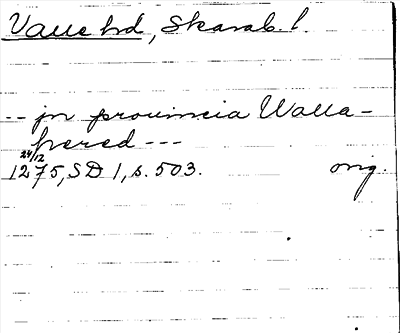 Valle hd, Skarab. l.
-- in provincia Walla-
hered ---
24/12
1275, SD 1, s. 503. orig.